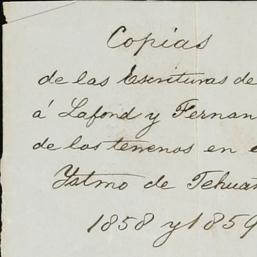 Copias
de las Escrituras de
á Lafond y Fernan
de los terrenos en e
Ystmo de Tehuan
1858 y 1859